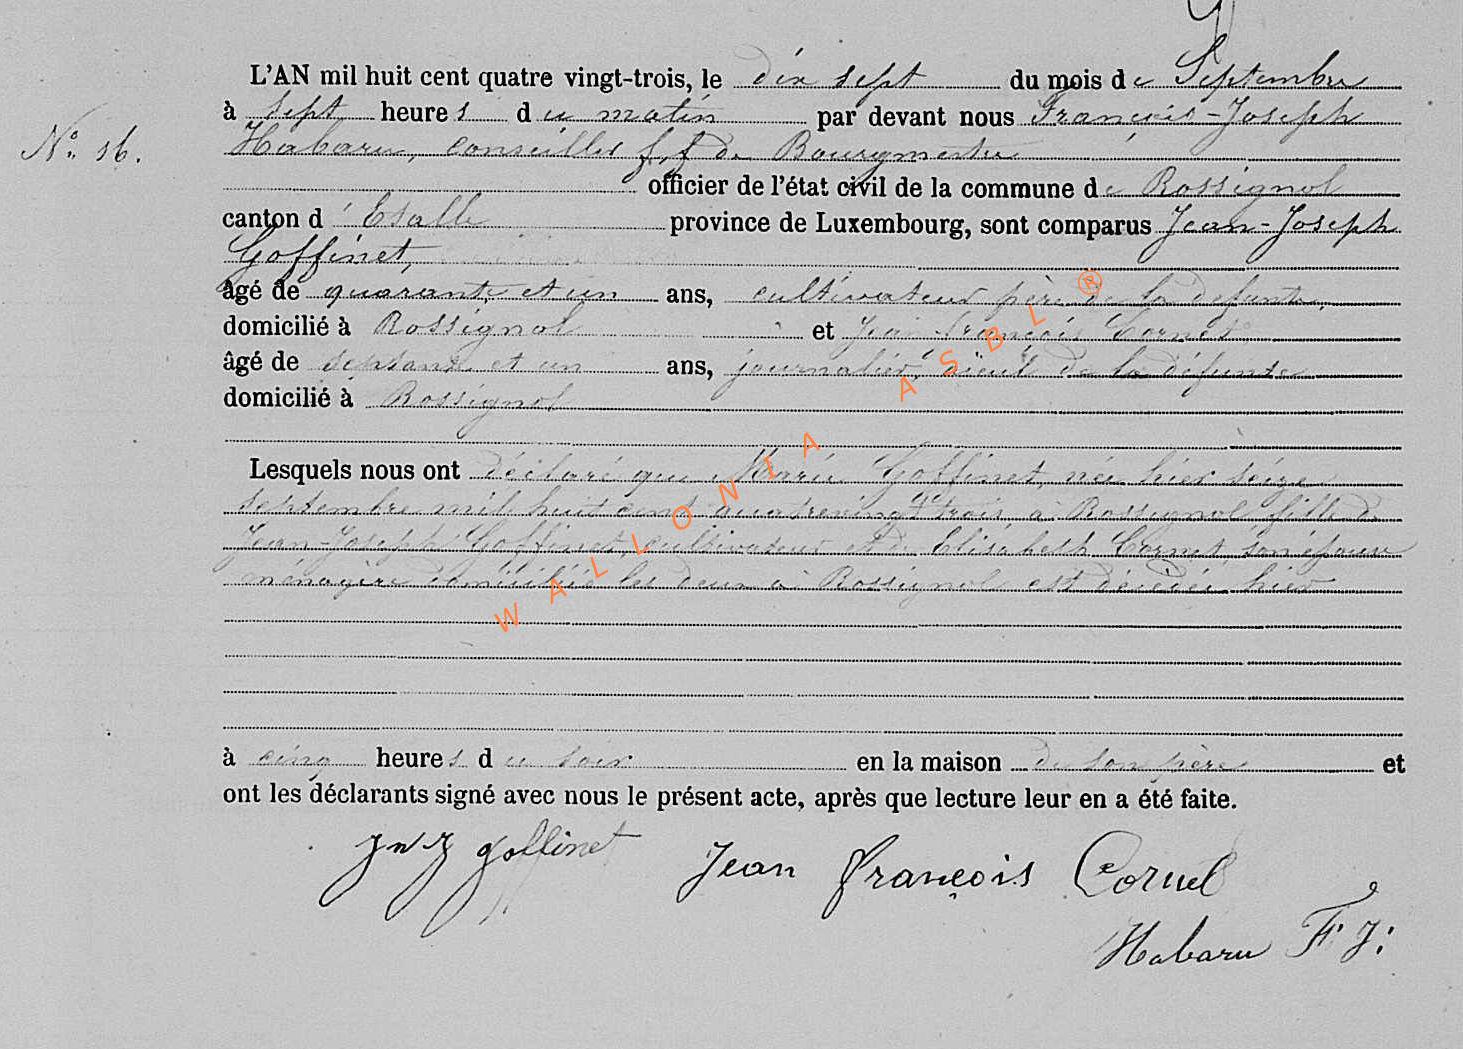 L'AN mil huit cent quatre vingt-trois, le dix sept du mois de Septembre
N° 16.
à sept heures du matin par devant nous François-Joseph
Habaru, conseiller f.f. de Bourgmestre
officier de l'état civil de la commune de Rossignol
canton d'Etalle province de Luxembourg, sont comparus Jean-Joseph
Goffinet,
âgé de quarante et un ans, cultivateur père de la défunte,
domicilié à Rossignol et Jean François Cornet
âgé de soixante et un ans, journalier, aïeul de la défunte
domicilié à Rossignol
Lesquels nous ont déclaré que Marie Goffinet, née hier seize
septembre mil huit cent quatrevingt trois, à Rossignol fille de
Jean-Joseph Goffinet, cultivateur et de Elisabeth Cornet, son épouse
ménagère domiciliés les deux à Rossignol est décédée hier
à cinq heures du soir en la maison de son père et
ont les déclarants signé avec nous le présent acte, après que lecture leur en a été faite.
WALLONIA ASBL ®
Jn J Goffinet Jean François Cornet
Habaru F J: